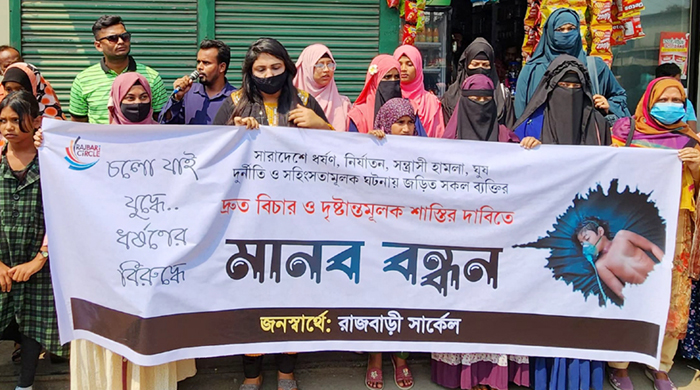 RAJBARI CIRCLE
চলো যাই
যুদ্ধে..
ধর্ষণের
বিরুদ্ধে
সারাদেশে ধর্ষণ, নির্যাতন, সন্ত্রাসী হামলা, ঘুষ
দুর্নীতি ও সহিংসতামূলক ঘটনায় জড়িত সকল ব্যক্তির
দ্রুত বিচার ও দৃষ্টান্তমূলক শাস্তির দাবিতে
মানব বন্ধন
জনস্বার্থে: রাজবাড়ী সার্কেল